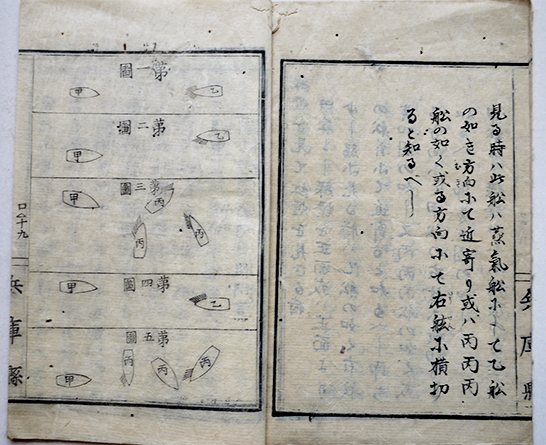 見る時ハ此舩ハ蒸氣舩にして乙舩
の如き方向にて近寄り或ハ丙丙丙
舩の如く或る方向にて右舷に横切
ると知るべし
兵庫縣
第一圖
甲
乙
第二圖
甲
乙
第三圖
甲
丙
丙
丙
第四圖
甲
乙
第五圖
甲
丙
丙
丙
口ノ十九
兵庫縣